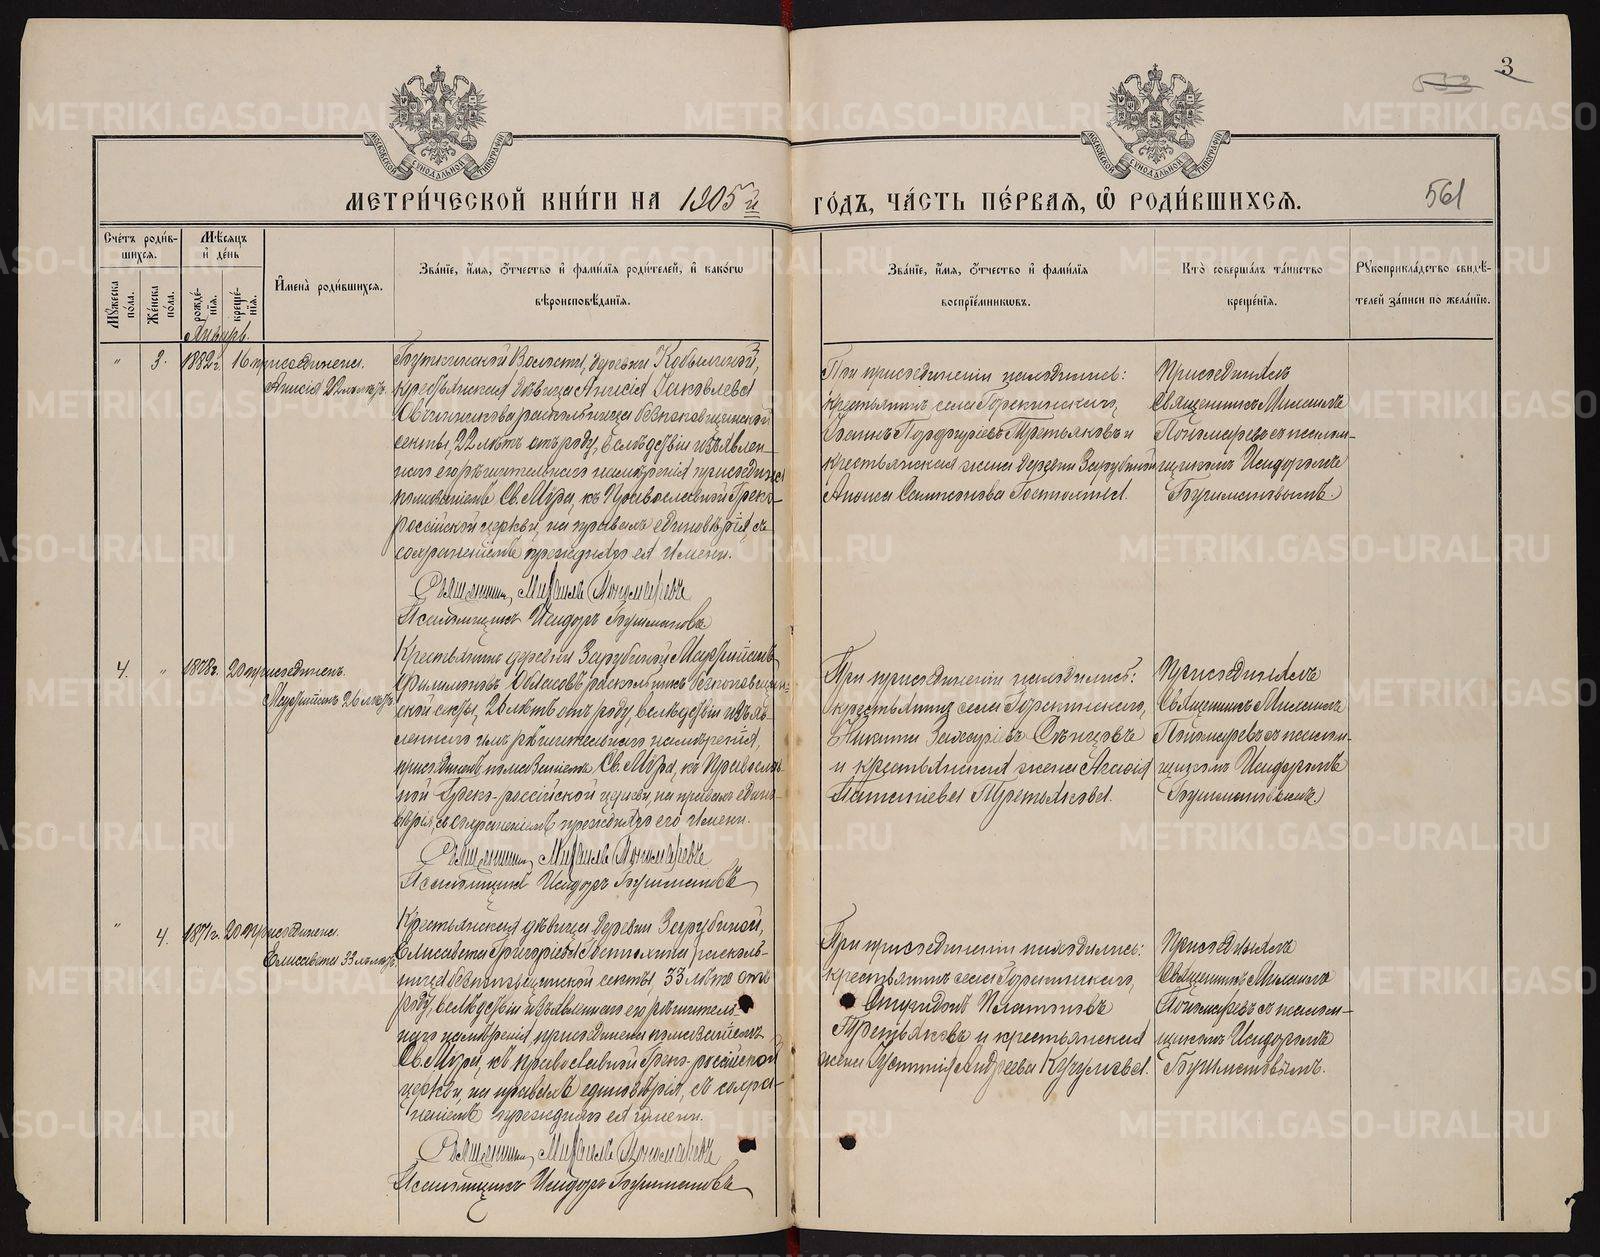 3
МОСКОВСКОЙ СУНОДАЛЬНОЙ ТИПОГРАФІИ
МОСКОВСКОЙ СУНОДАЛЬНОЙ ТИПОГРАФІИ
МЕТРИ́ЧЕСКОЙ КНИ́ГИ НА 1905 й
ГО́ДЪ, ЧА́СТЬ ПЕ́РВАѦ, Ѽ РОДИ́ВШИХСѦ.
561
Сче́тъ роди́в-
шихсѧ.
Мѣ́сѧцъ
и҆ де́нь
Мꙋ́жеска по́ла.
Же́нска по́ла.
рожде́-
нїѧ.
креще́-
нїѧ.
И҆мена̀ роди́вшихсѧ.
Зва́нїе, и҆́мѧ, ѻ҆́тчество и҆ фами́лїѧ роди́телей, и҆ како́гѡ
вѣроисповѣ́данїѧ.
Зва́нїе, и҆́мѧ, ѻ҆́тчество и҆ фами́лїѧ
воспрїе́мникѡвъ.
Кто̀ соверша́лъ та́инство
креще́нїѧ.
Рꙋкоприкла́дство свидѣ́-
телей за́писи по жела́нїю.
Январь.
" 3. 1882 г. 16 присоединена.
Анисія 22 лѣтъ.
Волости, деревни Кобылиной,
крестьянская дѣвица Анисія Іаковлева
Овчинникова раскольница безпоповщинской
секты, 22 лѣтъ отъ роду, вслѣдствіи изъявлен-
наго ею рѣшительнаго намѣренія присоединена
помазаніемъ Св. Мѵра, къ Православной Греко-
россійской церкви, на правилѣ единовѣрія, съ
сохраненіемъ прежняго ея имени.
Священникъ Михаилъ Пономаревъ
Псаломщикъ Исидоръ Бушмановъ
При присоединеніи находились:
крестьянинъ села
Порфиріевъ Третьяковъ и
крестьянская жена деревни Зарубиной
Сампсонова
Присоединялъ
Священникъ Михаилъ
Пономаревъ съ псалом-
щикомъ Исидоромъ
Бушмановымъ.
4. " 1878 г. 20 присоединенъ.
26 лѣтъ.
Крестьянинъ деревни Зарубиной
Филимоновъ раскольникъ безпоповщин-
ской секты, 26 лѣтъ отъ роду, вслѣдствіи изъяв-
леннаго имъ рѣшительнаго намѣренія,
присоединенъ помазаніемъ Св. Мѵра, къ Православ-
ной Греко-россійской церкви, на правилѣ едино-
вѣрія, съ сохраненіемъ прежняго его имени.
Священникъ Михаилъ Пономаревъ
Псаломщикъ Исидоръ Бушмановъ
При присоединеніи находились:
крестьянинъ села
Никита Захаріевъ
и крестьянская жена
Третьякова.
Присоединялъ
Священникъ Михаилъ
Пономаревъ съ псалом-
щикомъ Исидоромъ
Бушмановымъ.
" 4. 1871 г. 20 присоединена.
Елисавета 33 лѣтъ.
Крестьянская дѣвица деревни Зарубиной,
Елисавета Григоріева расколь-
ница безпоповщинской секты 33 лѣтъ отъ
роду, вслѣдствіи изъявленнаго ею рѣшитель-
наго намѣренія присоединена помазаніемъ
Св. Мѵра, къ православной Греко-россійской
церкви, на правилѣ единовѣрія, съ сохра-
неніемъ прежняго ея имени.
Священникъ Михаилъ Пономаревъ
Псаломщикъ Исидоръ Бушмановъ
При присоединеніи находились:
крестьянинъ села
Платоновъ
Третьяковъ и крестьянская
жена Устинія Андреева
Присоединялъ
Священникъ Михаилъ
Пономаревъ съ псалом-
щикомъ Исидоромъ
Бушмановымъ.
METRIKI.GASO-URAL.RU